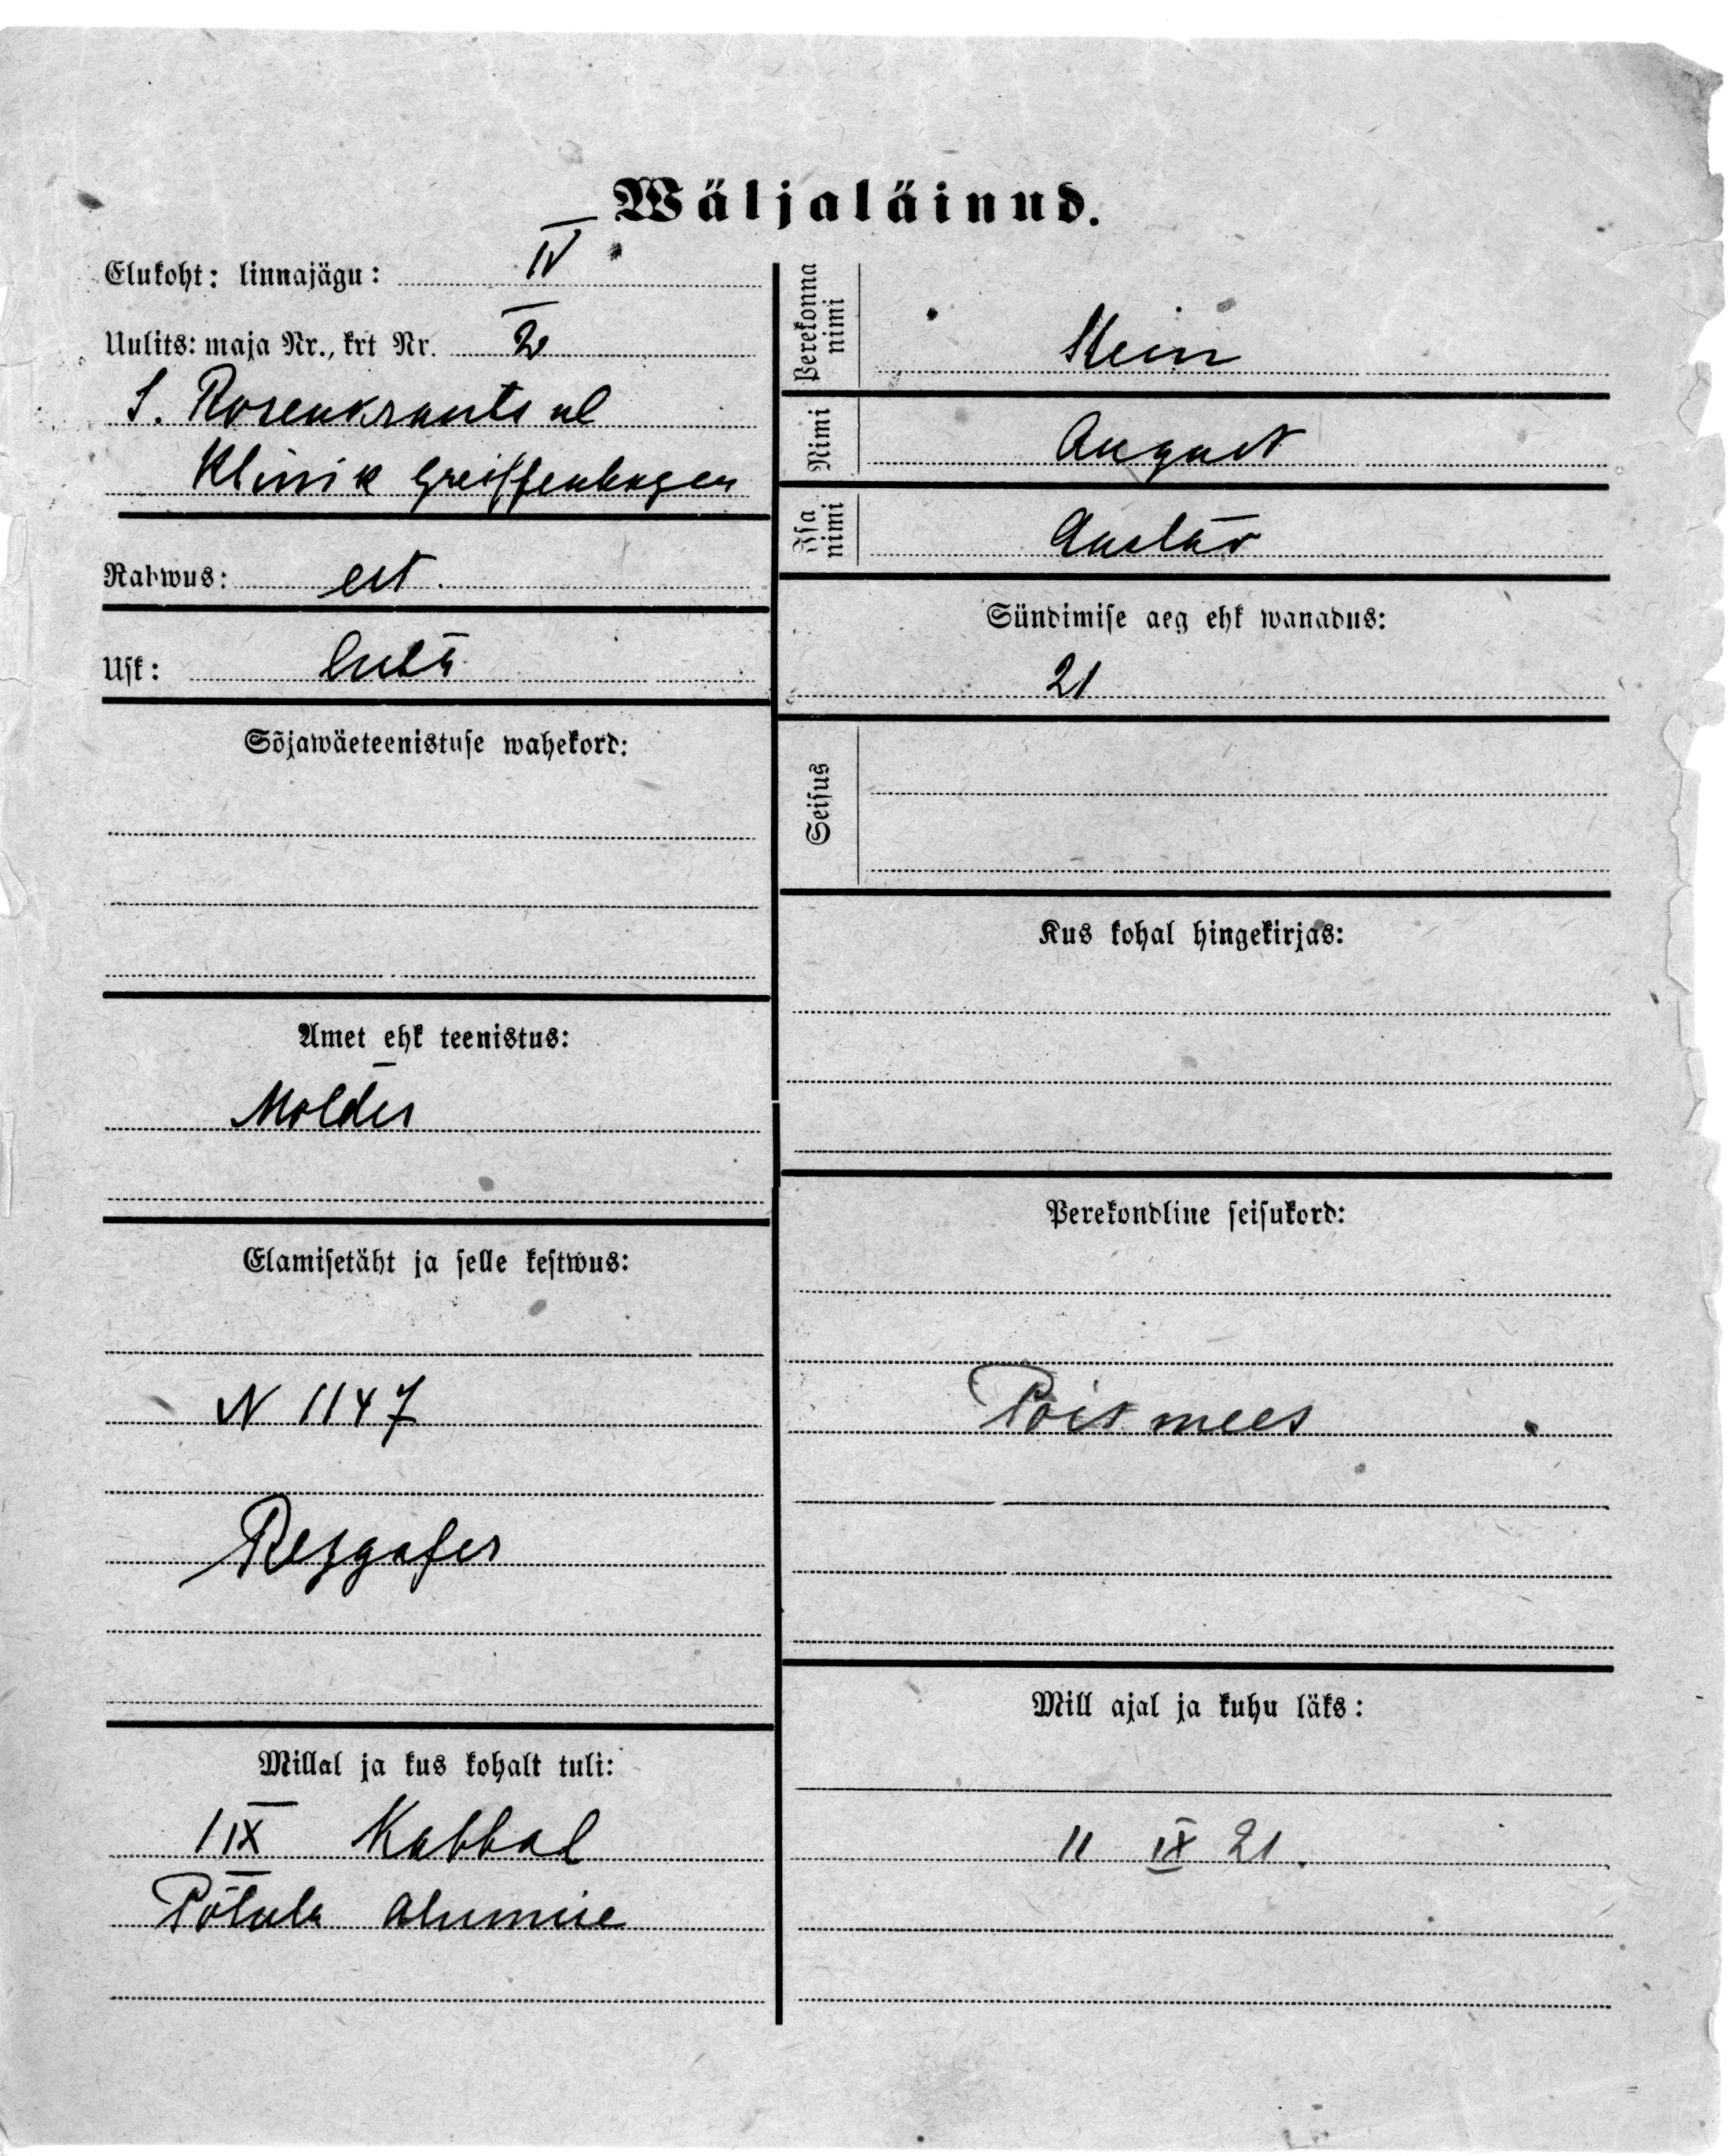 Wäljaläinud.
Elukoht: linnajägu: IV
Uulits: maja Nr., krt Nr. 2
S. Rosenkrants ul
Klinik Greiffenhagen
Rahwus: est.
Usk: luth
Sõjawäeteenistuse wahekord:
Amet ehk teenistus:
Mölder
Elamisetäht ja selle kestwus:
N 1147
Millal ja kus kohalt tuli:
1 IX Kabbal
alumise
Perekonna nimi Stein
Nimi August
Isa nimi
Sündimise aeg ehk wanadus:
21
Seisus
Kus kohal hingekirjas:
Perekondline seisukord:
Poismees
Mill ajal ja kuhu läks:
11 IX 21.